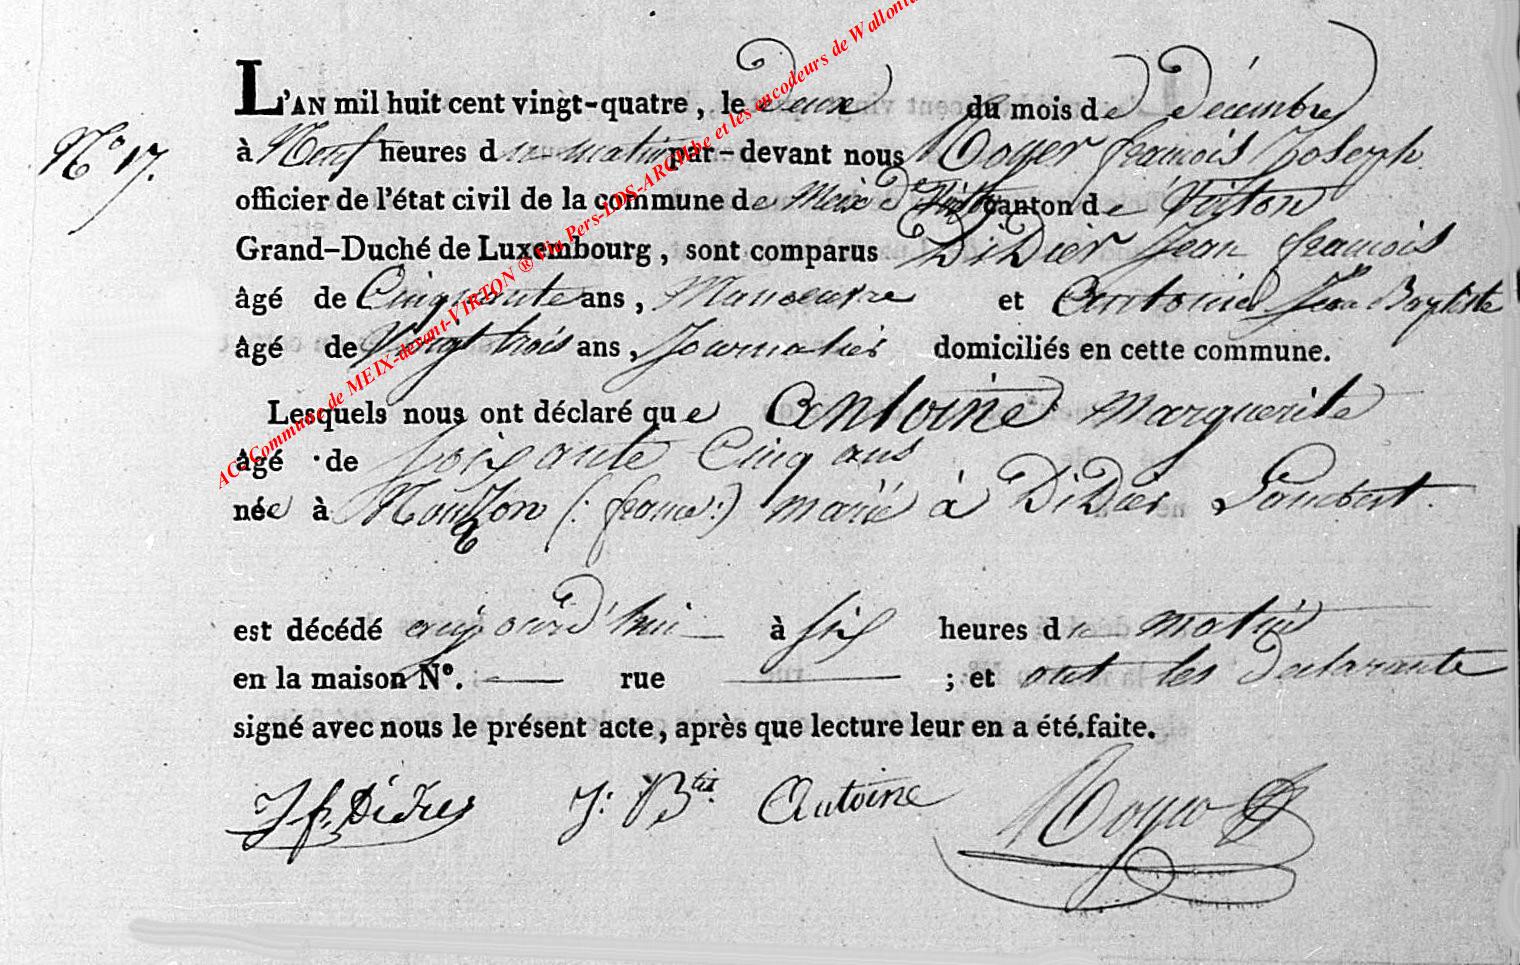 L'AN mil huit cent vingt-quatre, le Deux du mois de Décembre
N° 17.
à Neuf heures du matin par-devant nous Roger françois Joseph
officier de l'état civil de la commune de Meix dt Virton canton de Virton
Grand-Duché de Luxembourg, sont comparus Didier Jean françois
âgé de Cinquante ans, Manoeuvre et Antoine Jean Baptiste
âgé de Vingt trois ans, Journalier domiciliés en cette commune.
Lesquels nous ont déclaré que Antoine Marguerite
âgé de soixante Cinq ans
née à Mouzon (: france :) marié à Didier Lambert.
est décédé aujourd'hui à six heures du matin
en la maison N°. rue ; et ont les Declarants
signé avec nous le présent acte, après que lecture leur en a été faite.
J f Didier J: Btte Antoine Roger
AC - Commune de MEIX-devant-VIRTON ® via Pers-LDS-ARCH.be et les encodeurs de Wallonie